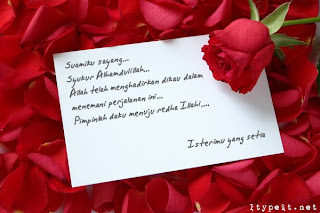 Suamiku sayang...
Syukur Alhamdulillah...
Allah telah menghadirkan dikau dalam
menemani perjalanan ini...
Pimpinlah daku menuju redha Illahi....
Isterimu yang setia
Itypeit.net